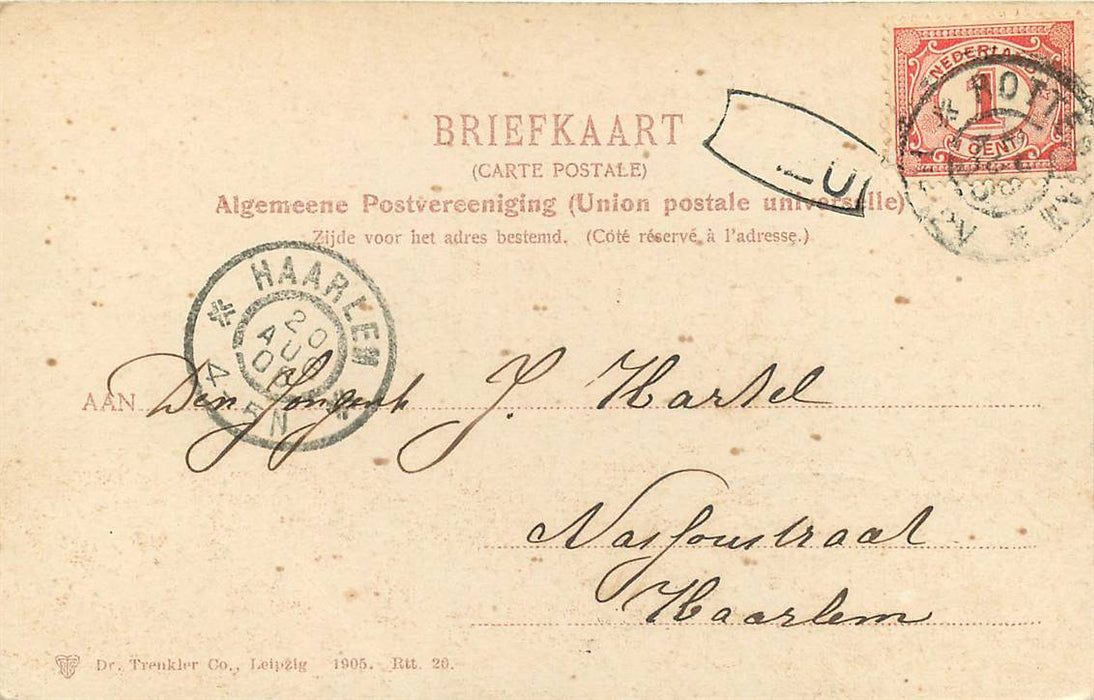 NEDERLAND
1
CENT
ROTTERDAM
BRIEFKAART
(CARTE POSTALE)
Algemeene Postvereeniging (Union postale universelle)
Zijde voor het adres bestemd. (Côté réservé à l'adresse.)
HAARLEM
20
AUG
4-5N
AAN Den J. Hartel
Nassaustraat
Haarlem
Dr. Trenkler Co., Leipzig 1905. Rtt. 20.